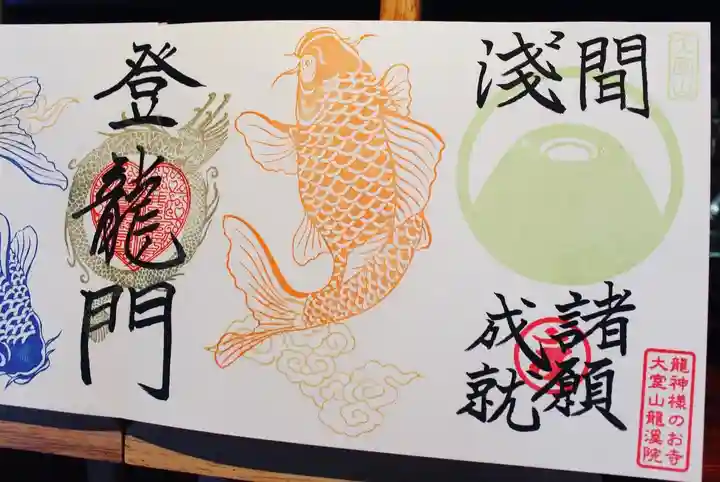 間淺
諸願
成就
大室山
龍神様のお寺
大室山龍溪院
登龍門